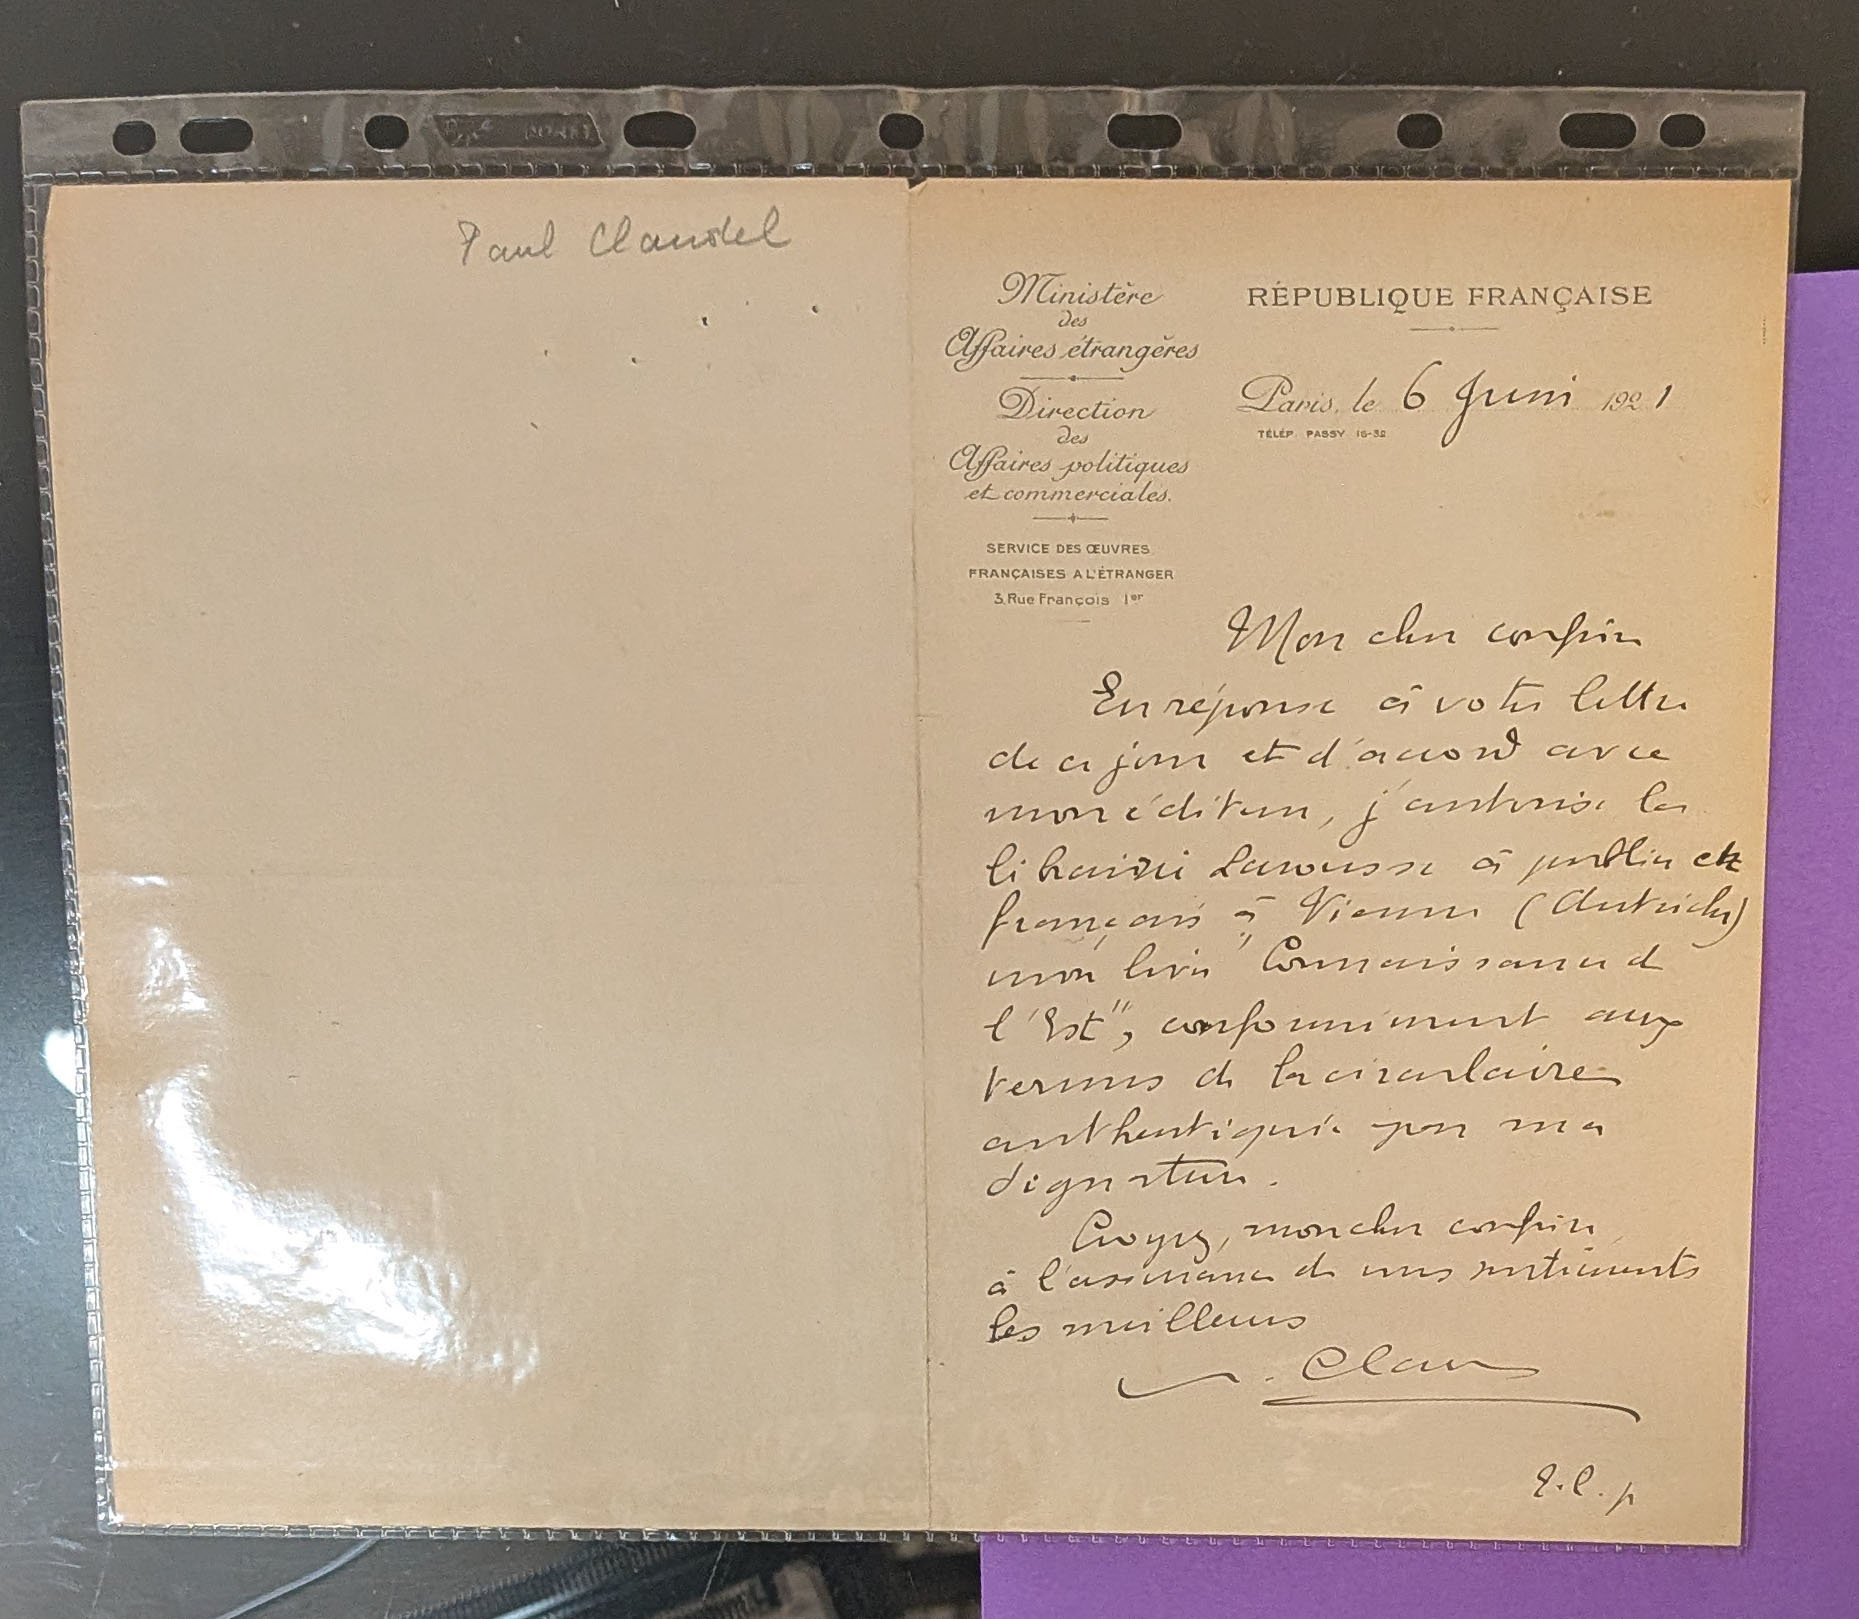 Paul Claudel
Ministère
des
Affaires étrangères
Direction
des
Affaires politiques
et commerciales.
SERVICE DES ŒUVRES
FRANÇAISES A L'ÉTRANGER
3, Rue François 1er
RÉPUBLIQUE FRANÇAISE
Paris, le 6 Juin 1921
TÉLÉP. PASSY 16-32
Mon cher confrère
En réponse à votre lettre
de ce jour et d'accord avec
mon éditeur, j'autorise la
librairie Larousse à publier en
français à Vienne (Autriche)
mon livre "Connaissance de
l'Est", conformément aux
termes de la circulaire
authentiquée par ma
signature.
Croyez, mon cher confrère,
à l'assurance de mes sentiments
les meilleurs
Claudel